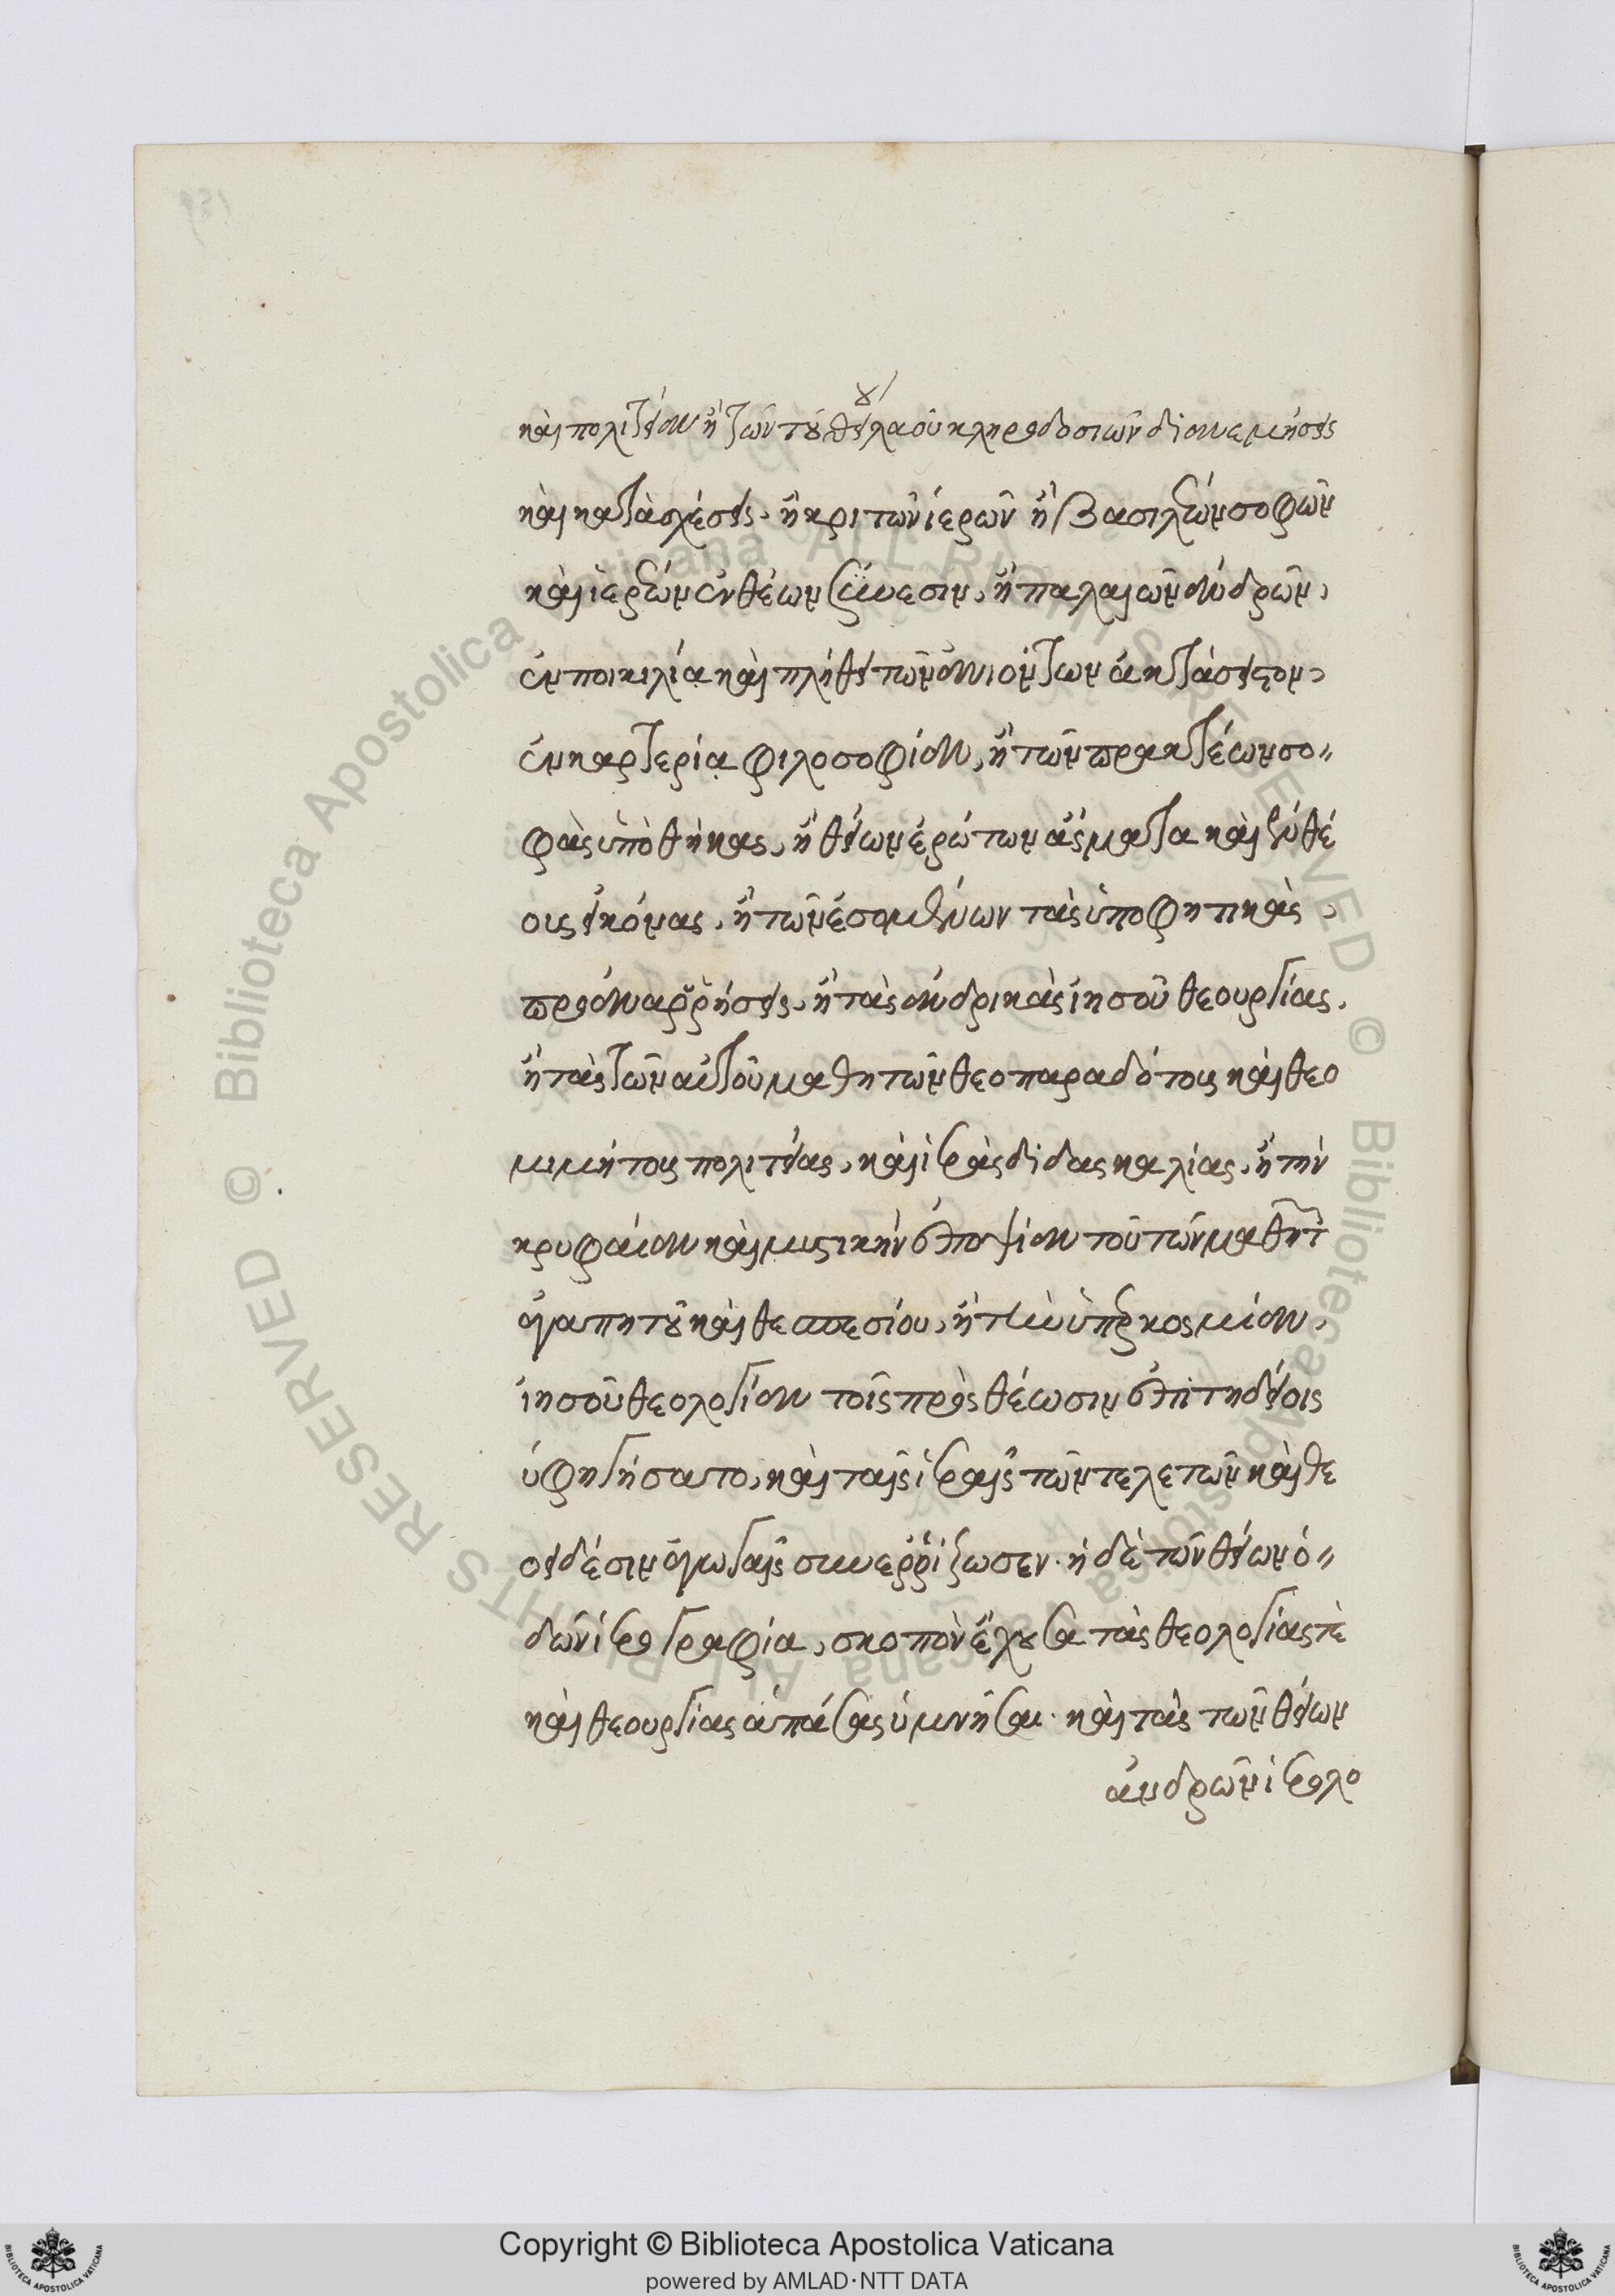 καὶ πολιτείαν ἢ τῶν τοῦ θείου λαοῦ κληροδοσιῶν διανεμήσεις
καὶ κατασχέσεις· ἢ κριτῶν ἱερῶν ἢ βασιλέων σοφῶν
καὶ ἱερέων ἐνθέων σύνεσιν, ἢ παλαιῶν ἀνδρῶν,
ἐν ποικιλίᾳ καὶ πλήθει τῶν ἀνιόντων ἀκατάσειστον,
ἐν καρτερίᾳ φιλοσοφίαν, ἢ τῶν πρακτέων σο-
φὰς ὑποθήκας, ἢ θείων ἐρώτων ᾄσματα καὶ ἐνθέ
ους εἰκόνας, ἢ τῶν ἐσομένων τὰς ὑποφητικὰς,
προαναρρήσεις, ἢ τὰς ἀνδρικὰς ἰησοῦ θεουργίας,
ἢ τὰς τῶν αὐτοῦ μαθητῶν θεοπαραδότους καὶ θεο
μιμήτους πολιτείας, καὶ ἱερὰς διδασκαλίας, ἢ τὴν
κρυφίαν καὶ μυστικὴν ἐποψίαν τοῦ τῶν μαθητ
ἀγαπητοῦ καὶ θεσπεσίου, ἢ τὴν ὑπερκοσμίαν,
ἰησοῦ θεολογίαν τοῖς πρὸς θέωσιν ἐπιτηδείοις
ὑφηγήσατο, καὶ ταῖς ἱεραῖς τῶν τελετῶν καὶ θε
οειδέσιν ἀγωγαῖς συνερρίζωσεν· ἡ δὲ τῶν θείων ὁ-
δῶν ἱερογραφία, σκοπὸν ἔχουσα τὰς θεολογίας τὲ
καὶ θεουργίας ἁπάσας ὑμνῆσαι· καὶ τὰς τῶν θείων
ἀνδρῶν ἱερολο
Copyright © Biblioteca Apostolica Vaticana
powered by AMLAD·NTT DATA